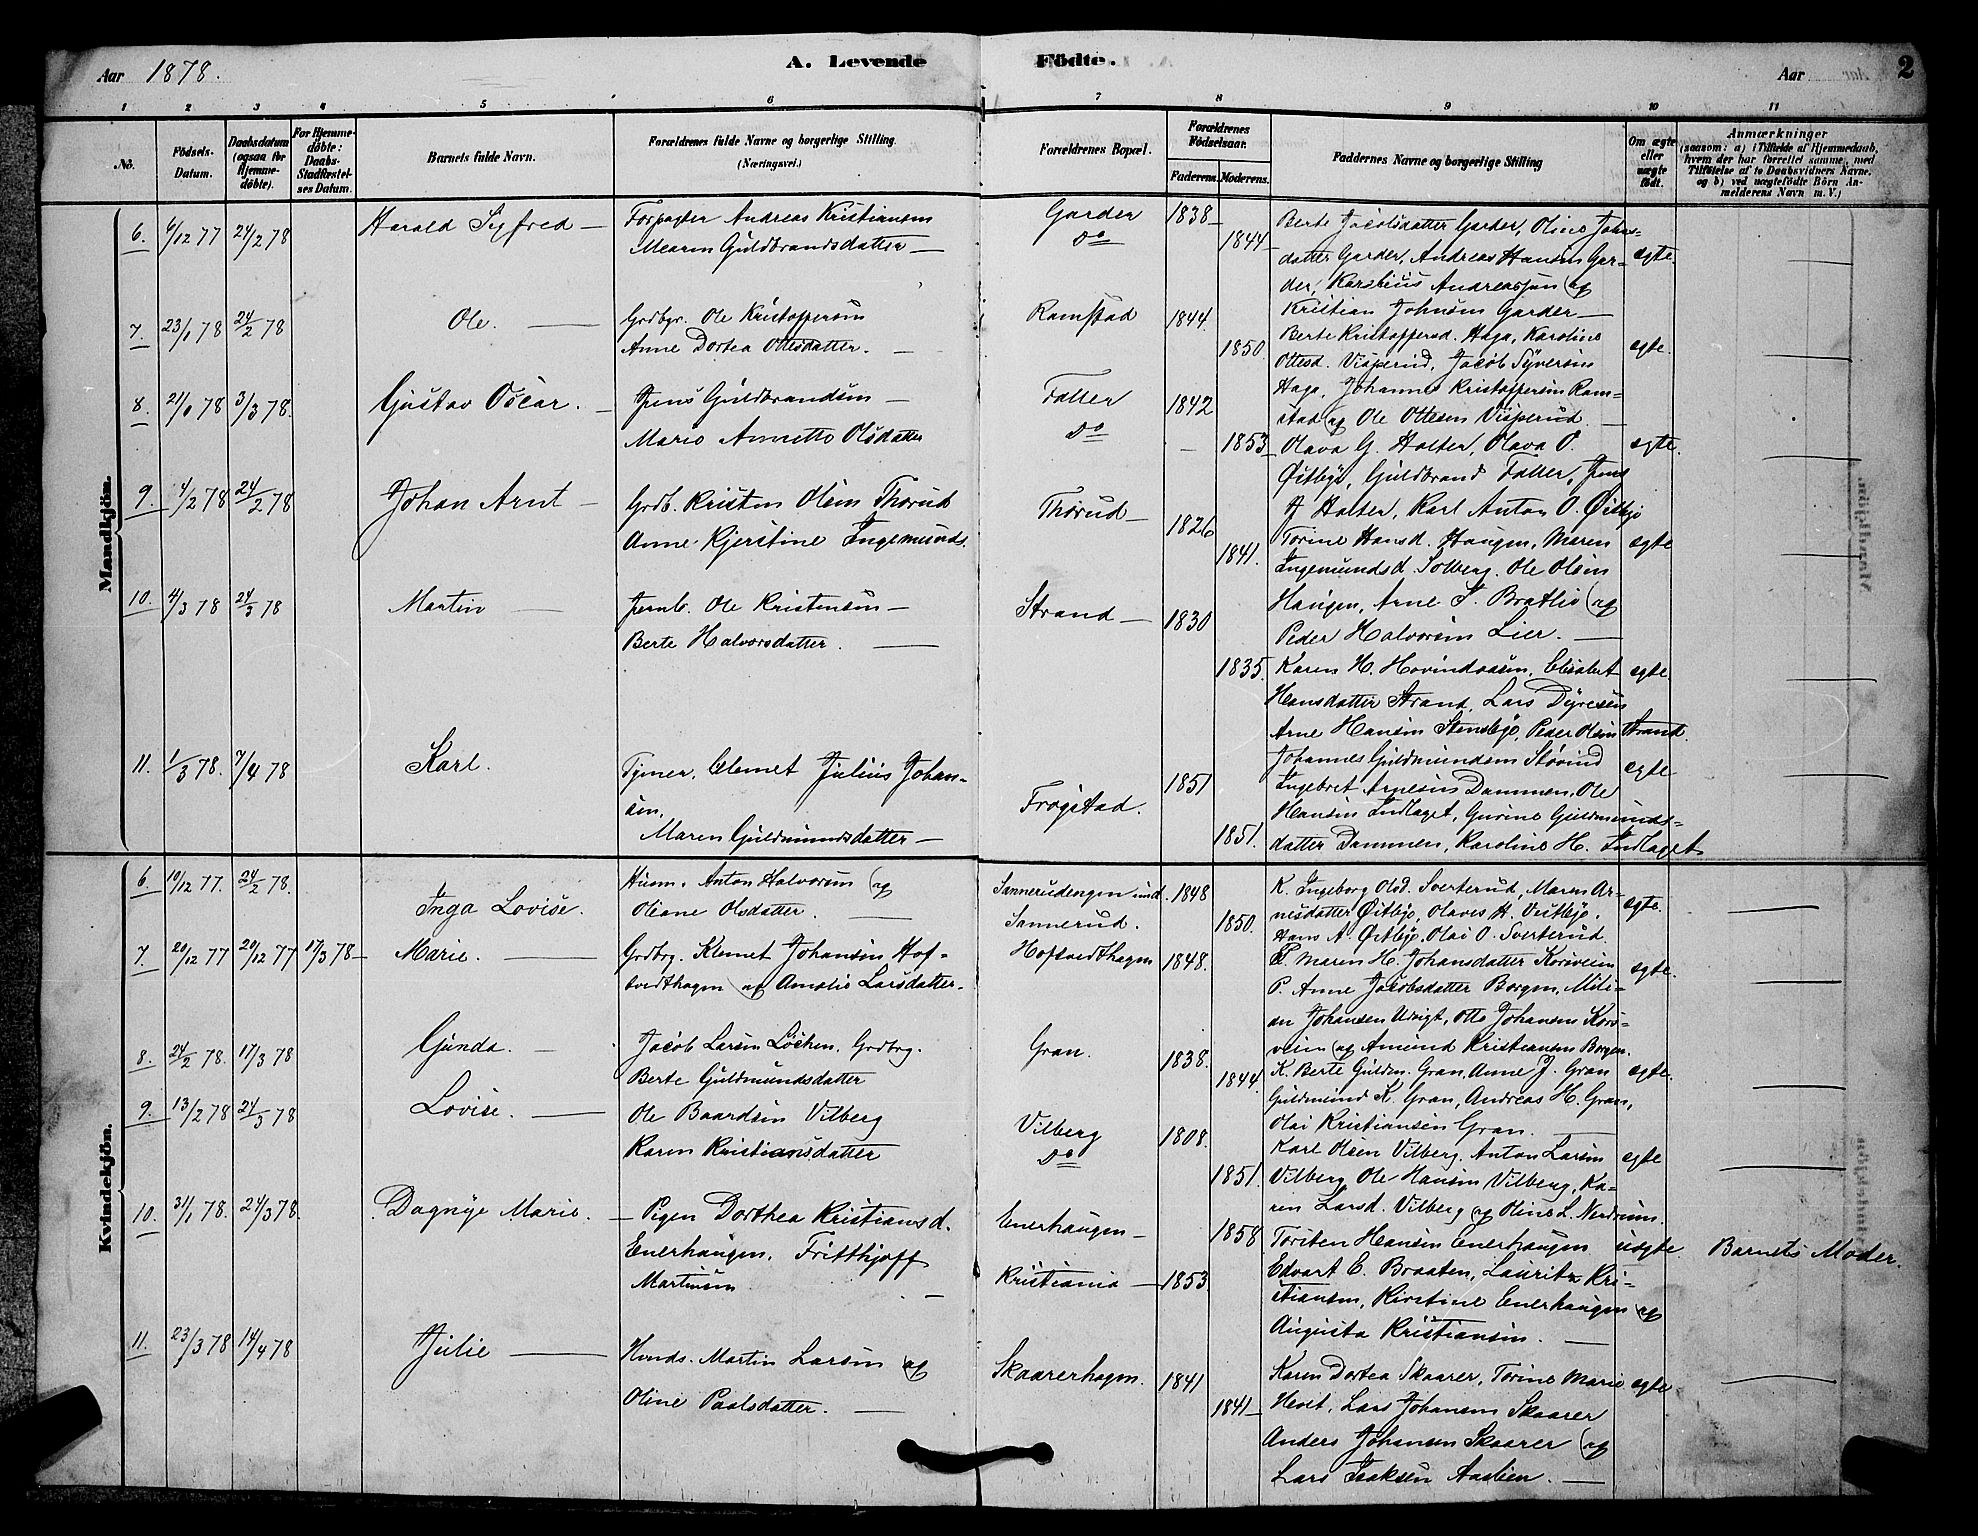 Aar 1878.
A. Levende Födte.
Aar
2
1 2 3 4 5 6 7 8 9 10 11
No.
Födsels-Datum.
Daabsdatum (ogsaa for Hjemme-döbte).
For Hjemme-döbte: Daabs-Stadfæstel-ses Datum.
Barnets fulde Navn.
Forældrenes fulde Navne og borgerlige Stilling.
(Næringsvei.)
Forældrenes Bopæl.
Forældrenes Födselsaar.
Faderens. Moderens.
Faddernes Navne og borgerlige Stilling
Om ægte eller uægte födt.
Anmærkninger
(saasom: a) i Tilfælde af Hjemmedaab, hvem der har forrettet samme, med Tilföielse af to Daabsvidners Navne, og b) ved uægtefödte Börn An-melderens Navn m. V.)
Mandkjön.
6. 6/12 77 24/2 78 Harald Sigfred — Forpagter Andreas Kristiansen
Maren Guldbrandsdatter —
Garder
Do
1838 1844
Berte Jacobsdatter Garder, Oline Johns-
datter Garder, Andreas Hansen Gar-
der, Andreassen og
Kristian Johnsen Garder —
ægte.
7. 23/1 78 24/2 78 Ole. — Grdbgr. Ole Kristoffersen
Anne Dortea Ottesdatter. —
Ramstad 1844. 1850.
Berte Kristoffersd. Haga, Karoline
Ottesd. Visperud, Jacob Syversen
Haga, Johannes Kristoffersen Ram-
stad og Ole Ottesen Visperud. —
ægte.
8. 21/1 78 3/3 78. Gustav Oscar. — Jens Guldbrandsen —
Marie Annette Olsdatter
Faller
Do
1842 1853
Olava G. Halter, Olava O.
Østbye, Guldbrand Faller, Jens
J Halter, Karl Anton O. Østbye
ægte.
9. 4/2 78 24/2 78 Johan Arnt — Grdb. Kristen Olsen Thorud
Anne Kjerstine Ingemunds.
Thorud — 1826 1841.
Torine Hansd. Haugen, Maren
Ingemundsd. Solberg. Ole Olsen
Haugen, Arne S. Bratlie og
Peder Halvorsen Lier. —
ægte
10. 4/3 78 24/3 78 Martin — Jernb. Ole Kristensen —
Berte Halvorsdatter. —
Strand — 1830 1835.
Karen H. Hovindaasen, Elisabet
Hansdatter Strand, Lars Dyresen
Arne Hansen Stensbye, Peder Olsen Strand.
ægte.
11. 1/3 78. 7/4 78 Karl. Clemet Julius Johan-
sen,
Maren Guldmundsdatter —
Frogstad. 1851 1851.
Johannes Guldmundsen Støvind
Ingebret Arnesen Dammen, Ole
Hansen Indlaget, Gurine Guldmunds-
datter Dammen, Karoline H. Indlaget
ægte
Kvindekjön.
6. 10/12 77. 24/2 78. Inga Lovise. Husm. Anton Halvorsen og
Oliane Olsdatter. —
Sannerudengen und.
Sannerud.
1848 1850.
K. Ingeborg Olsd. Sverterud, Maren Ar-
nesdatter Østbye, Olaves H. Vestbye,
Hans A. Østbye, Olai O. Sverterud.
ægte.
7. 20/12 77 29/12 77 17/3 78 — Marie. — Grdbrg. Klemet Johansen Hof-
svedthagen og Amalie Larsdatter.
Hofsvedthagen 1848.
P. Maren H. Johansdatter Korsveien
P. Anne Jacobsdatter Borgen, Mili-
an Johansen Udsigt, Otto Johansen Kors-
veien og Amund Kristiansen Borgen.
ægte.
8. 24/2 78. 17/3 78 Gunda. — Jacob Larsen Løchen, Grdbrg.
Berte Guldmundsdatter
Gran. 1838. 1844
K. Berte Guldm. Gran, Anne J. Gran
Guldmund K. Gran, Andreas H. Gran,
Olai Kristiansen Gran. —
ægte.
9. 13/2 78 24/3 78 Lovise. — Ole Baardsen Vilberg
Karen Kristiansdatter
Vilberg
Do
1808. 1851.
Karl Olsen Vilberg, Anton Larsen
Vilberg, Ole Hansen Vilberg, Ka-
ren Larsd. Vilberg og Oline L. Nerdrum.
ægte
10. 31/1 78. 24/3 78. Dagnye Marie. — Pigen Dorthea Kristiansd.
Enerhaugen, Fritthjoff
Martinsen —
Enerhaugen —
Kristiania —
1858 1853.
Torsten Hansen Enerhaugen
Edvart E. Braaten, Lauritz Kri-
stiansen, Kirstine Enerhaugen og
Augusta Kristiansen. —
uægte Barnets Moder.
11. 23/3 78 14/4 78 Julie — Huusm. Martin Larsen og
Oline Paalsdatter. —
Skaarerhagen. 1841 1841
Karen Dortea Skaarer, Torine Marie
Lars Johansen Skaarer
Anders Johansen Skaarer og
Lars Isaksen Aaslien. —
ægte